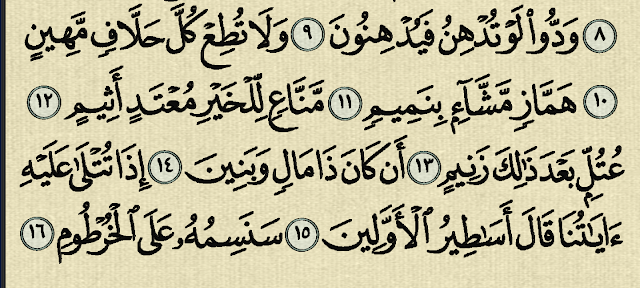 ٨ وَدُّوا۟ لَوْ تُدْهِنُ فَيُدْهِنُونَ ٩ وَلَا تُطِعْ كُلَّ حَلَّافٍ مَّهِينٍ
١٠ هَمَّازٍ مَّشَّآءٍۭ بِنَمِيمٍ ١١ مَّنَّاعٍ لِّلْخَيْرِ مُعْتَدٍ أَثِيمٍ ١٢
عُتُلٍّۭ بَعْدَ ذَٰلِكَ زَنِيمٍ ١٣ أَن كَانَ ذَا مَالٍ وَبَنِينَ ١٤ إِذَا تُتْلَىٰ عَلَيْهِ
ءَايَٰتُنَا قَالَ أَسَٰطِيرُ ٱلْأَوَّلِينَ ١٥ سَنَسِمُهُۥ عَلَى ٱلْخُرْطُومِ ١٦